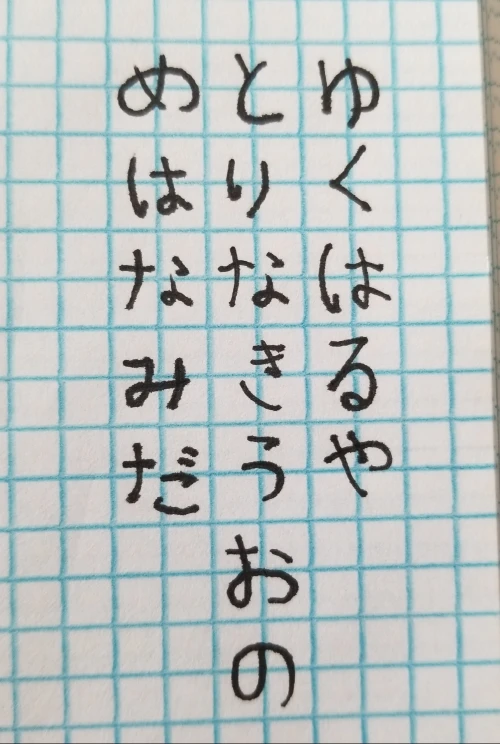 ゆくはるや
とりなきうおの
めはなみだ